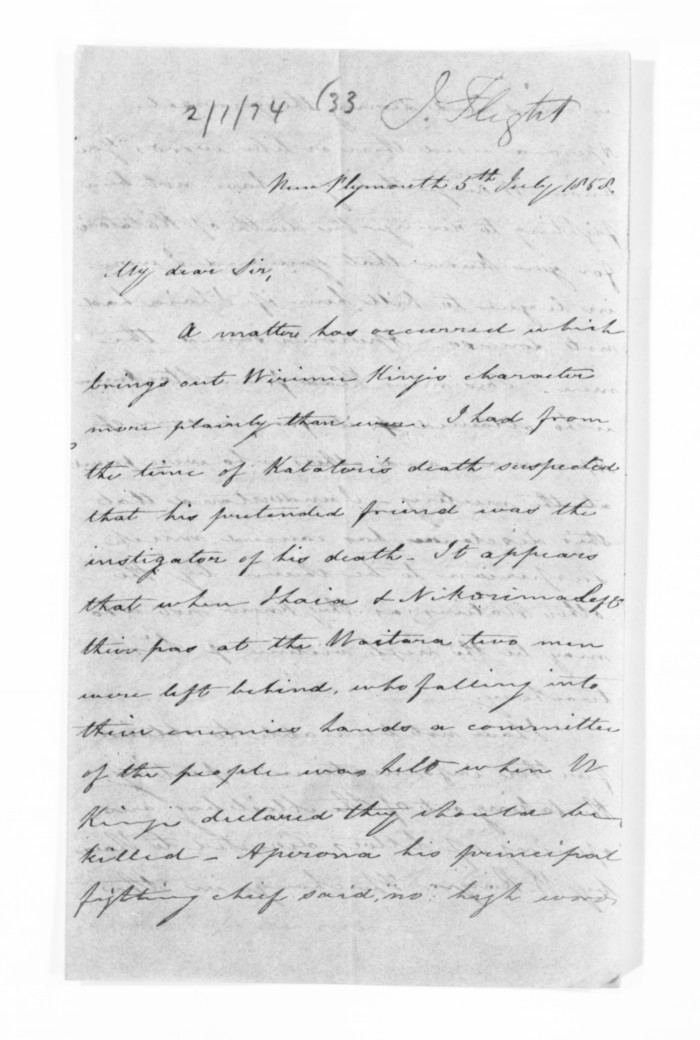 2/7/74 (33 J. Flight
New Plymouth 5th July 1858.
My dear Sir,
A matter has occurred which
brings out Wirimu King's character
more plainly than ever. I had from
the time of Katatori's death suspected
that his pretended friend was the
instigator of his death - It appears
that when Ihaia & Nikorima left
their pas at the Waitara two men
were left behind, who falling into
their enemies hands a committee
of the people was held when W
King declared they should be
killed - Aperona his principal
fighting chief said, no. high words